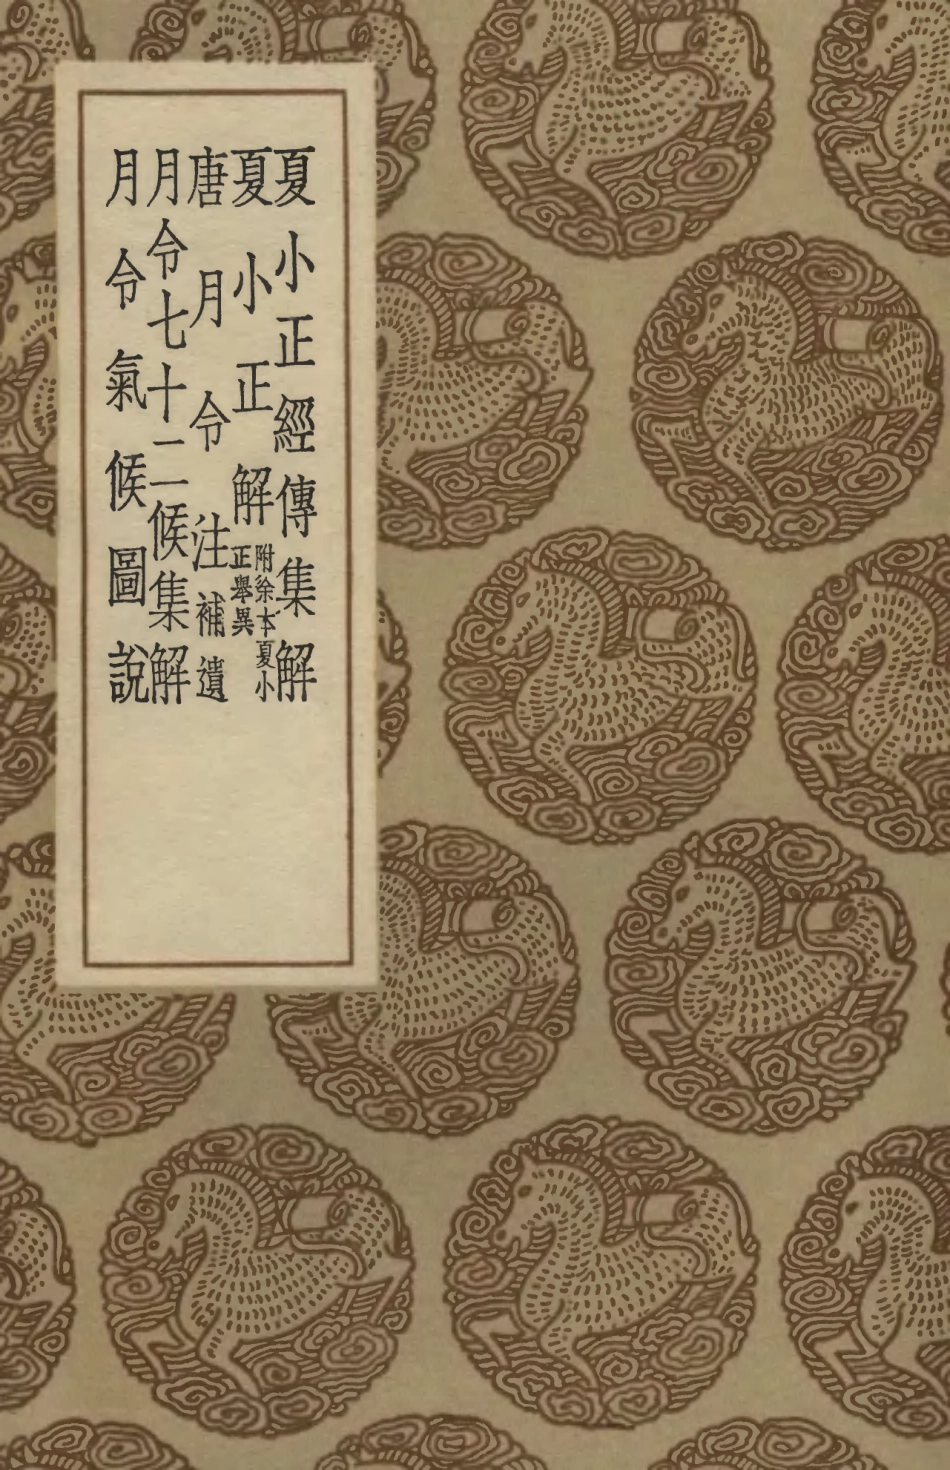 夏小正經傳集解
夏小正解附徐本夏小正舉異
唐月令注補遺
月令七十二候集解
月令氣候圖說